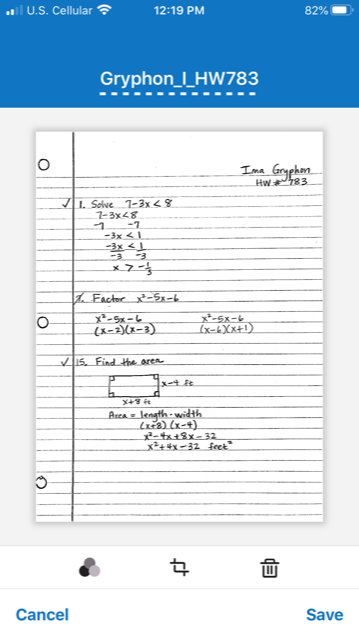 U.S. Cellular 12:19 PM 82%
Gryphon_I_HW783
Ima Gryphon
HW # 783
✓ 1. Solve 7-3x < 8
7-3x<8
-7 -7
-3x < 1
-3x < 1
-3 -3
x > -1/3
7. Factor x²-5x-6
x²-5x-6 x²-5x-6
(x-2)(x-3) (x-6)(x+1)
✓ 15. Find the area
x-4 ft
x+8 ft
Area = length · width
(x+8) (x-4)
x²-4x+8x-32
x²+4x-32 feet²
Cancel Save